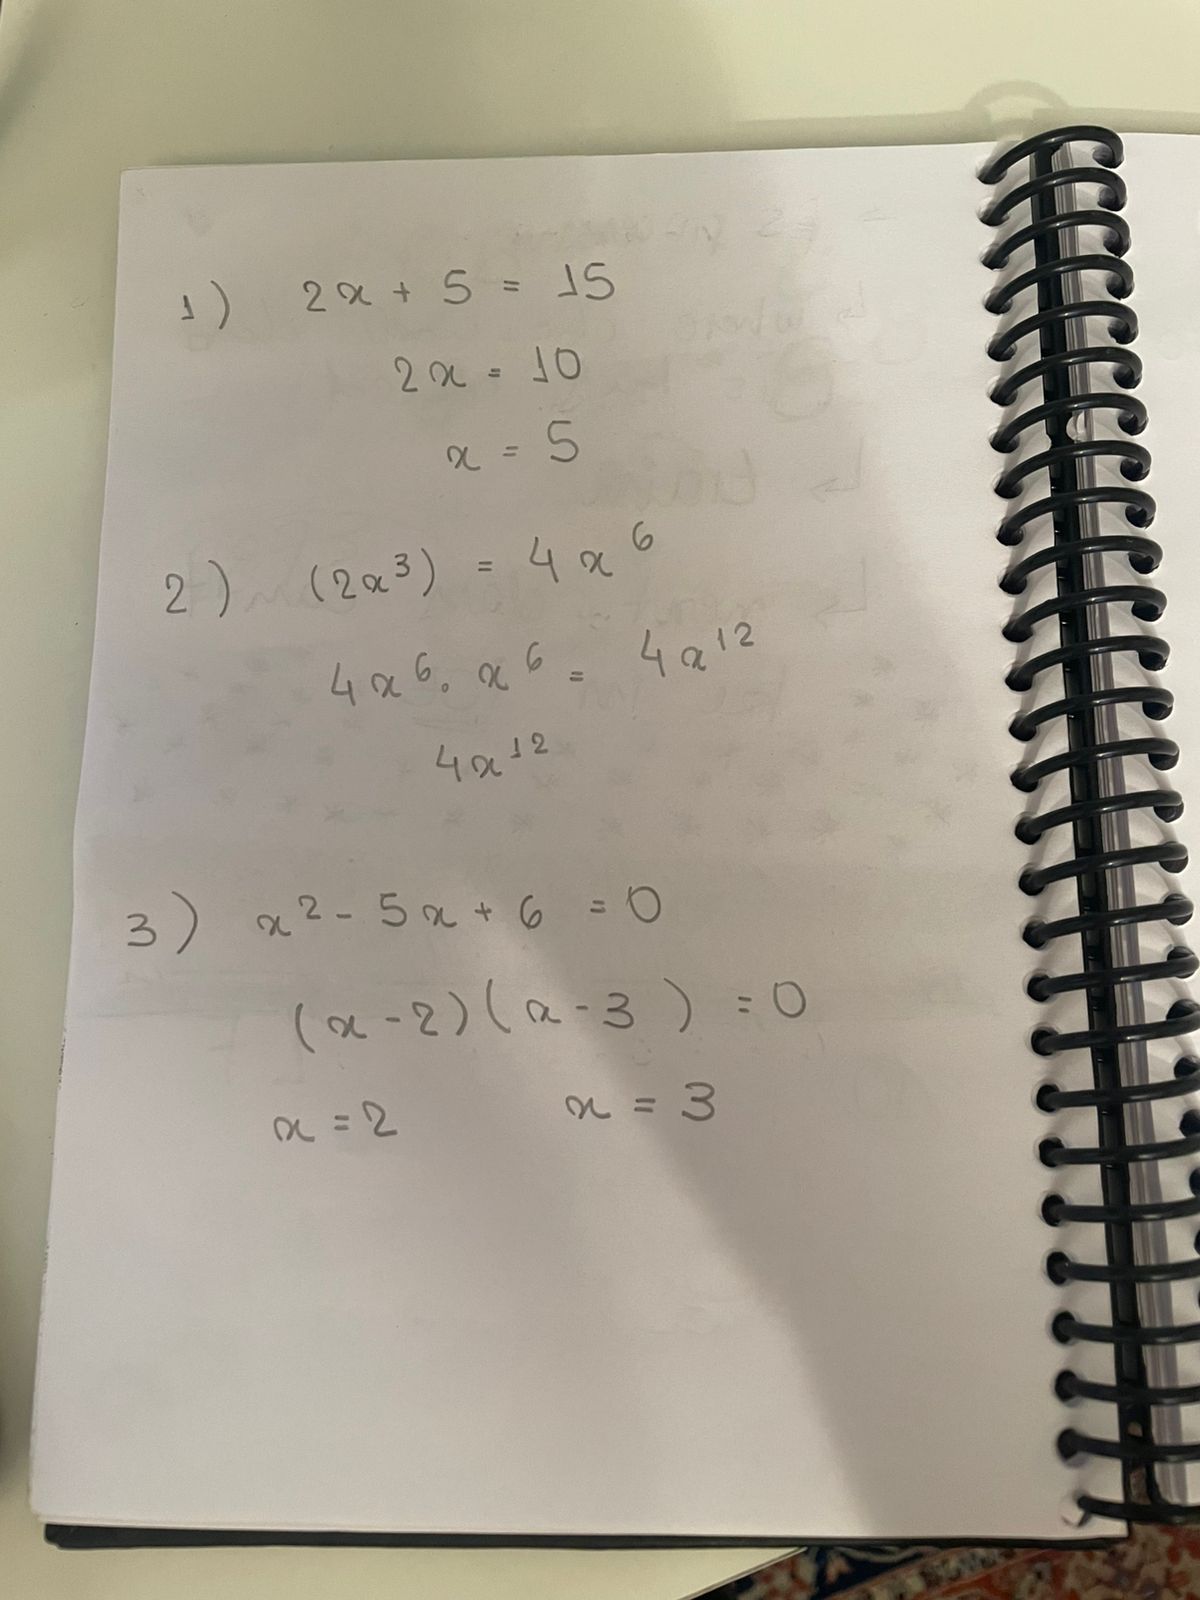 1) 2x + 5 = 15
2x = 10
x = 5
2) (2x³) = 4x⁶
4x⁶ · x⁶ = 4x¹²
4x¹²
3) x² - 5x + 6 = 0
(x - 2)(x - 3) = 0
x = 2 x = 3